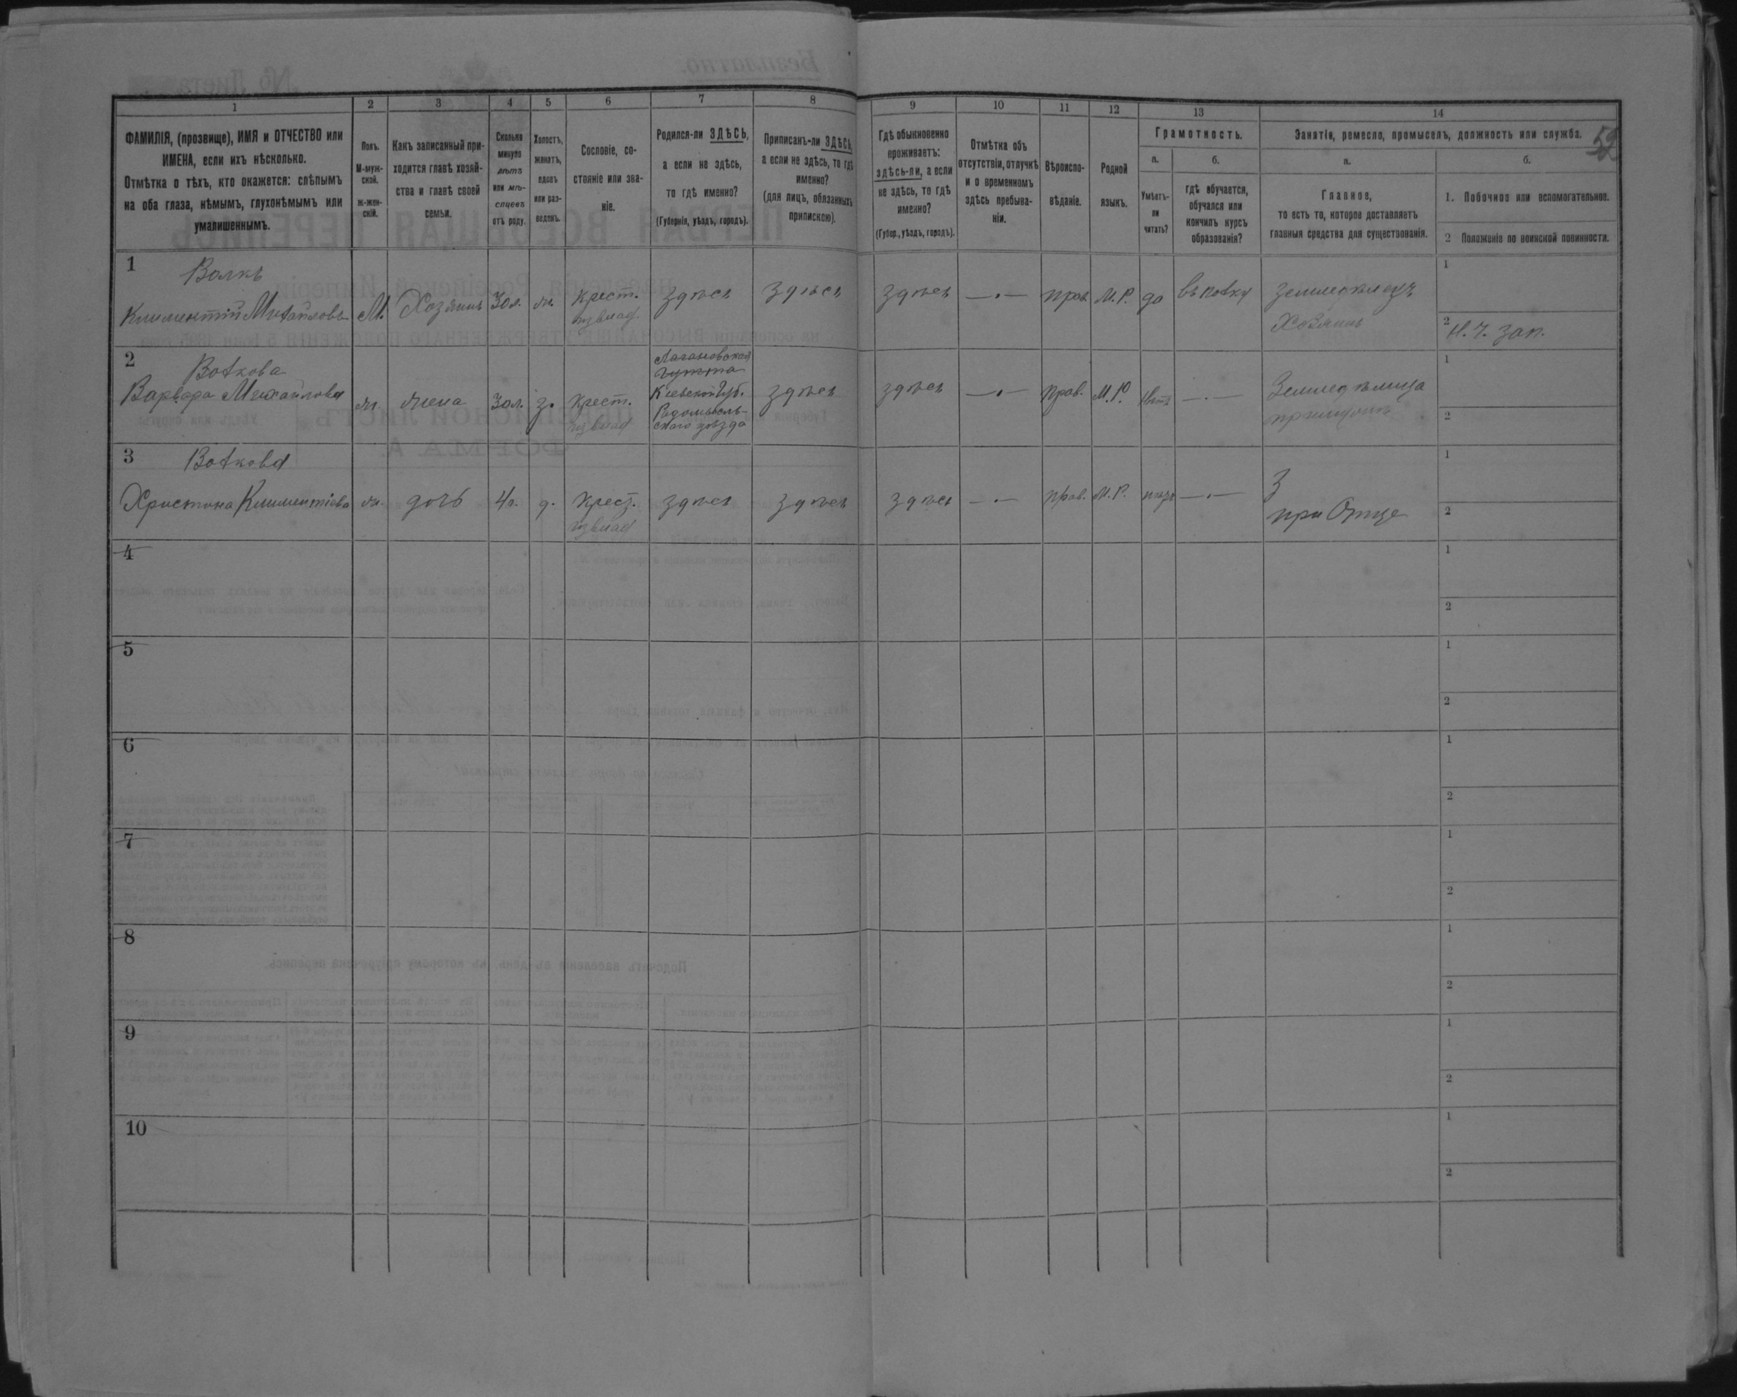 1 2 3 4 5 6 7 8 9 10 11 12 13 14
ФАМИЛІЯ, (прозвище), ИМЯ и ОТЧЕСТВО или
ИМЕНА, если ихъ нѣсколько.
Отмѣтка о тѣхъ, кто окажется: слѣпымъ
на оба глаза, нѣмымъ, глухонѣмымъ или
умалишеннымъ.
Полъ.
М-муж-
ской.
ж-жен-
скій.
Какъ записанный при-
ходится главѣ хозяй-
ства и главѣ своей
семьи.
Сколько
минуло
лѣтъ
или мѣ-
сяцевъ
отъ роду.
Холостъ,
женатъ,
вдовъ
или раз-
веденъ.
Сословіе, со-
стояніе или зва-
ніе.
Родился-ли ЗДѢСЬ,
а если не здѣсь,
то гдѣ именно?
(Губернія, уѣздъ, городъ).
Приписанъ-ли ЗДѢСЬ,
а если не здѣсь, то гдѣ
именно?
(для лицъ, обязанныхъ
припискою).
Гдѣ обыкновенно
проживаетъ:
здѣсь-ли, а если
не здѣсь, то гдѣ
именно?
(Губер., уѣздъ, городъ).
Отмѣтка объ
отсутствіи, отлучкѣ
и о временномъ
здѣсь пребыва-
ніи.
Вѣроиспо-
вѣданіе.
Родной
языкъ.
Грамотность.
а.
Умѣетъ-
ли
читать?
б.
гдѣ обучается,
обучался или
кончилъ курсъ
образованія?
Занятіе, ремесло, промыселъ, должность или служба.
а.
Главное,
то есть то, которое доставляетъ
главныя средства для существованія.
б.
1. Побочное или вспомогательное.
2 Положеніе по воинской повинности.
1
Волкъ
Климентій Михайловъ
М. Хозяинъ 30л. ж. крест.
из влад.
здѣсь здѣсь здѣсь —.— прав. М.Р. да
земледѣлецъ
Хозяинъ
1
2 Н. Ч. зап.
2
Волкова
Варвара Михайлова
ж. жена 30л. з. крест.
из влад
Гутта
Кіевской Губ.
Радомысль-
скаго уѣзда
здѣсь здѣсь —.— прав. М.Р. нѣтъ —.—
Земледѣлица
1
2
3
Волкова
Христина Климентіева
ж. дочь 4л. д. крест.
из влад
здѣсь здѣсь здѣсь —.— прав. М.Р. —.—
З
при Отце
1
2
4
1
2
5
1
2
6
1
2
7
1
2
8
1
2
9
1
2
10
1
2